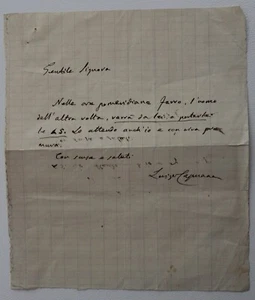 Gentile Signora
Nelle ore pomeridiane farò, l'uomo
dell'altra volta, verrà da lei a portarle
lo Lo attendo anch'io e con viva
Con scuse e saluti
Luigi Capuana